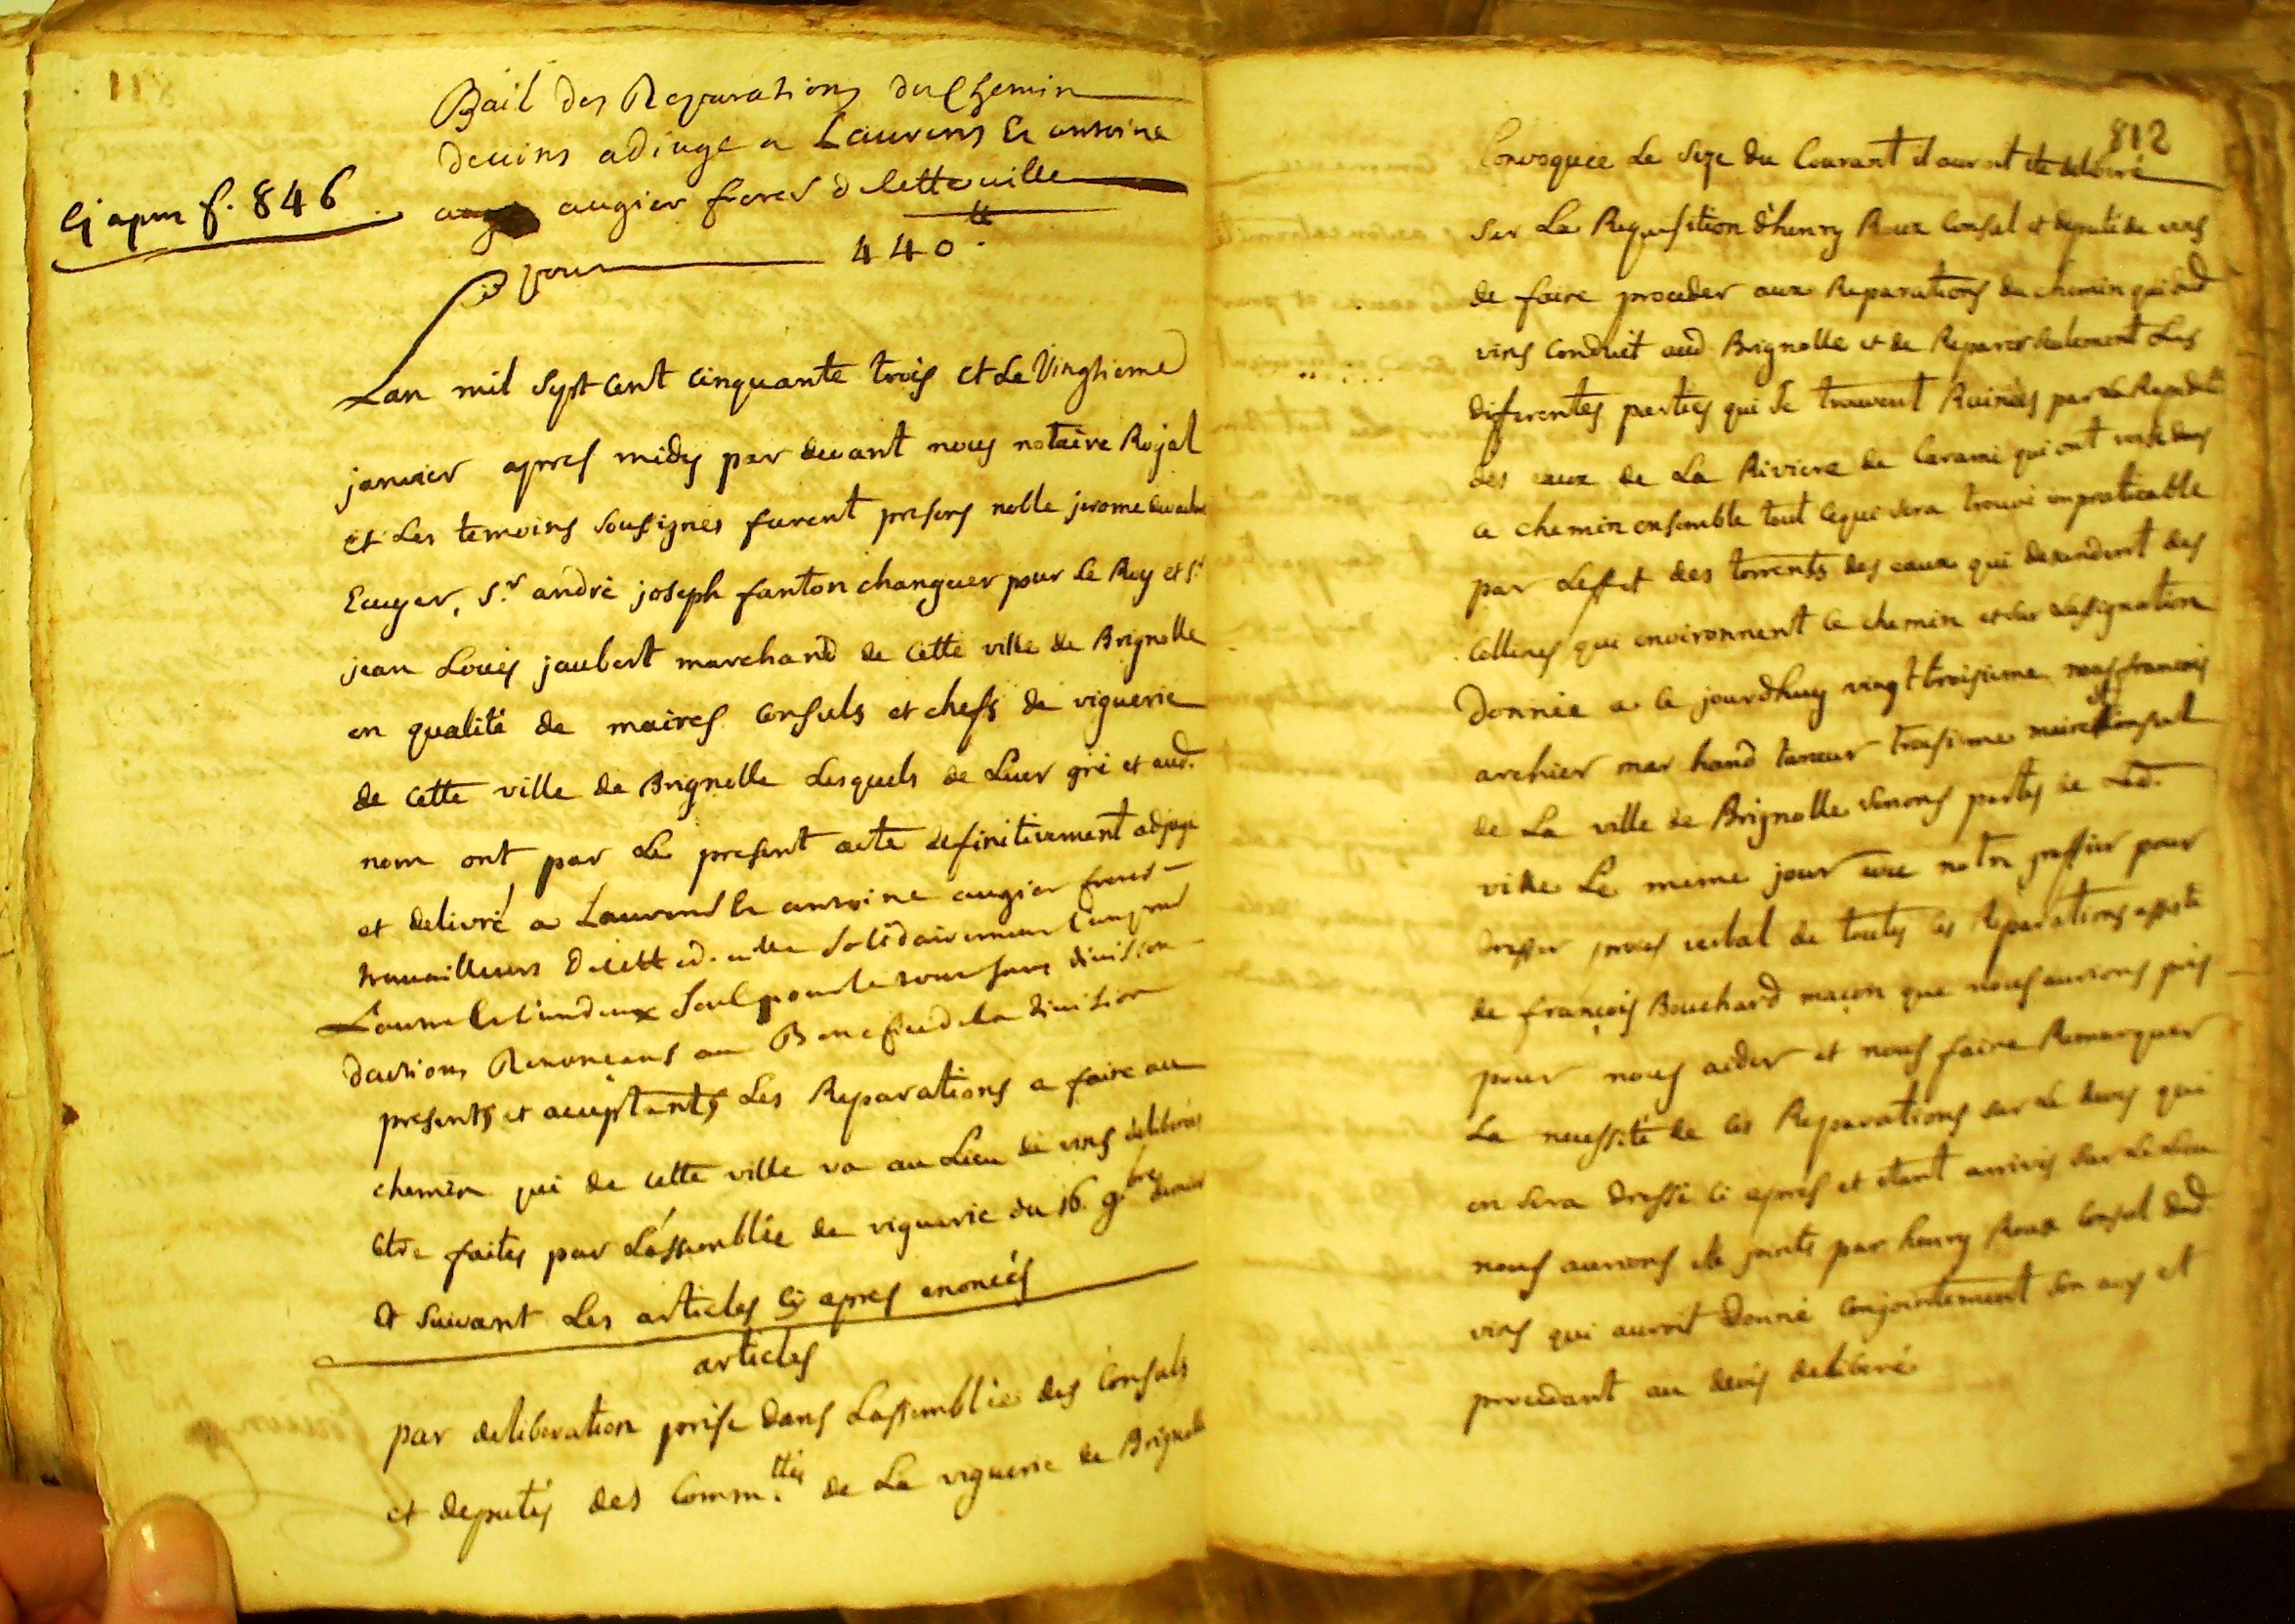 Bail des Reparations du Chemin
devins adjuge a Laurens Et antoine
augier freres de cette ville
Cy apres f. 846
pour 440 tt
Lan mil sept cent cinquante trois et Le Vingtieme
janvier apres midy par devant nous notaire Royal
et Les temoins sousignés furent presens noble jerome
Ecuyer, Sr. andré joseph fanton changeur pour Le Roy et Sr
jean Louis jaubert marchand de cette ville de Brignolle
en qualité de maires Consuls et chefs de viguerie
de cette ville de Brignolle Lesquels de Leur gré et aud.
nom ont par Le present acte definitivement adjugé
et delivré a Laurens Et antoine augier freres
travailleurs De cette d. ville Solidairement l'un pour
L'autre Et l'un deux Seul pour le tout sans division
dactions Renonceans au Benefice de la division
presents et acceptants Les Reparations a faire au
chemin qui de cette ville va au Lieu de vins deliberées
etre faites par L'assemblée de viguerie du 16. 9bre dernier
Et suivant Les articles cy apres enoncés
articles
par deliberation prise dans L'assemblée des Consuls
et deputés des Comm.ttés de La viguerie de Brignolle
812
Convoquée Le seze du Courant il auroit été deliberé
sur La Requisition d'henry Roux Consul et deputé de vins
de faire proceder aux Reparations du chemin qui dud
vins conduit aud Brignolle et de Reparer seulement Les
differentes parties qui se trouvent Ruinées par La Rapidité
des eaux de La Riviere de Carami qui ont versé dans
ce chemin ensemble tout cequi sera trouvé impraticable
par Leffet des torrents des eaux qui descendent des
collines qui environnent ce chemin et sur Lassignation
Donnée a ce jourdhuy vingt troisieme nous francois
archier marchand taneur troisieme maire et Consul
de La ville de Brignolle serions partis de Lad.
ville Le meme jour avec notre greffier pour
dresser proces verbal de toutes les Reparations assisté
de françois Bouchard maçon que nous aurions pris
pour nous aider et nous faire Remarquer
La necessité de ces Reparations sur Le devis qui
en sera dressé ci aprés et etant arrivés sur Le Lieu
nous aurions été joints par henry Roux Consul dud
vins qui auroit Donné conjointement son avis et
procedant au devis deliberé